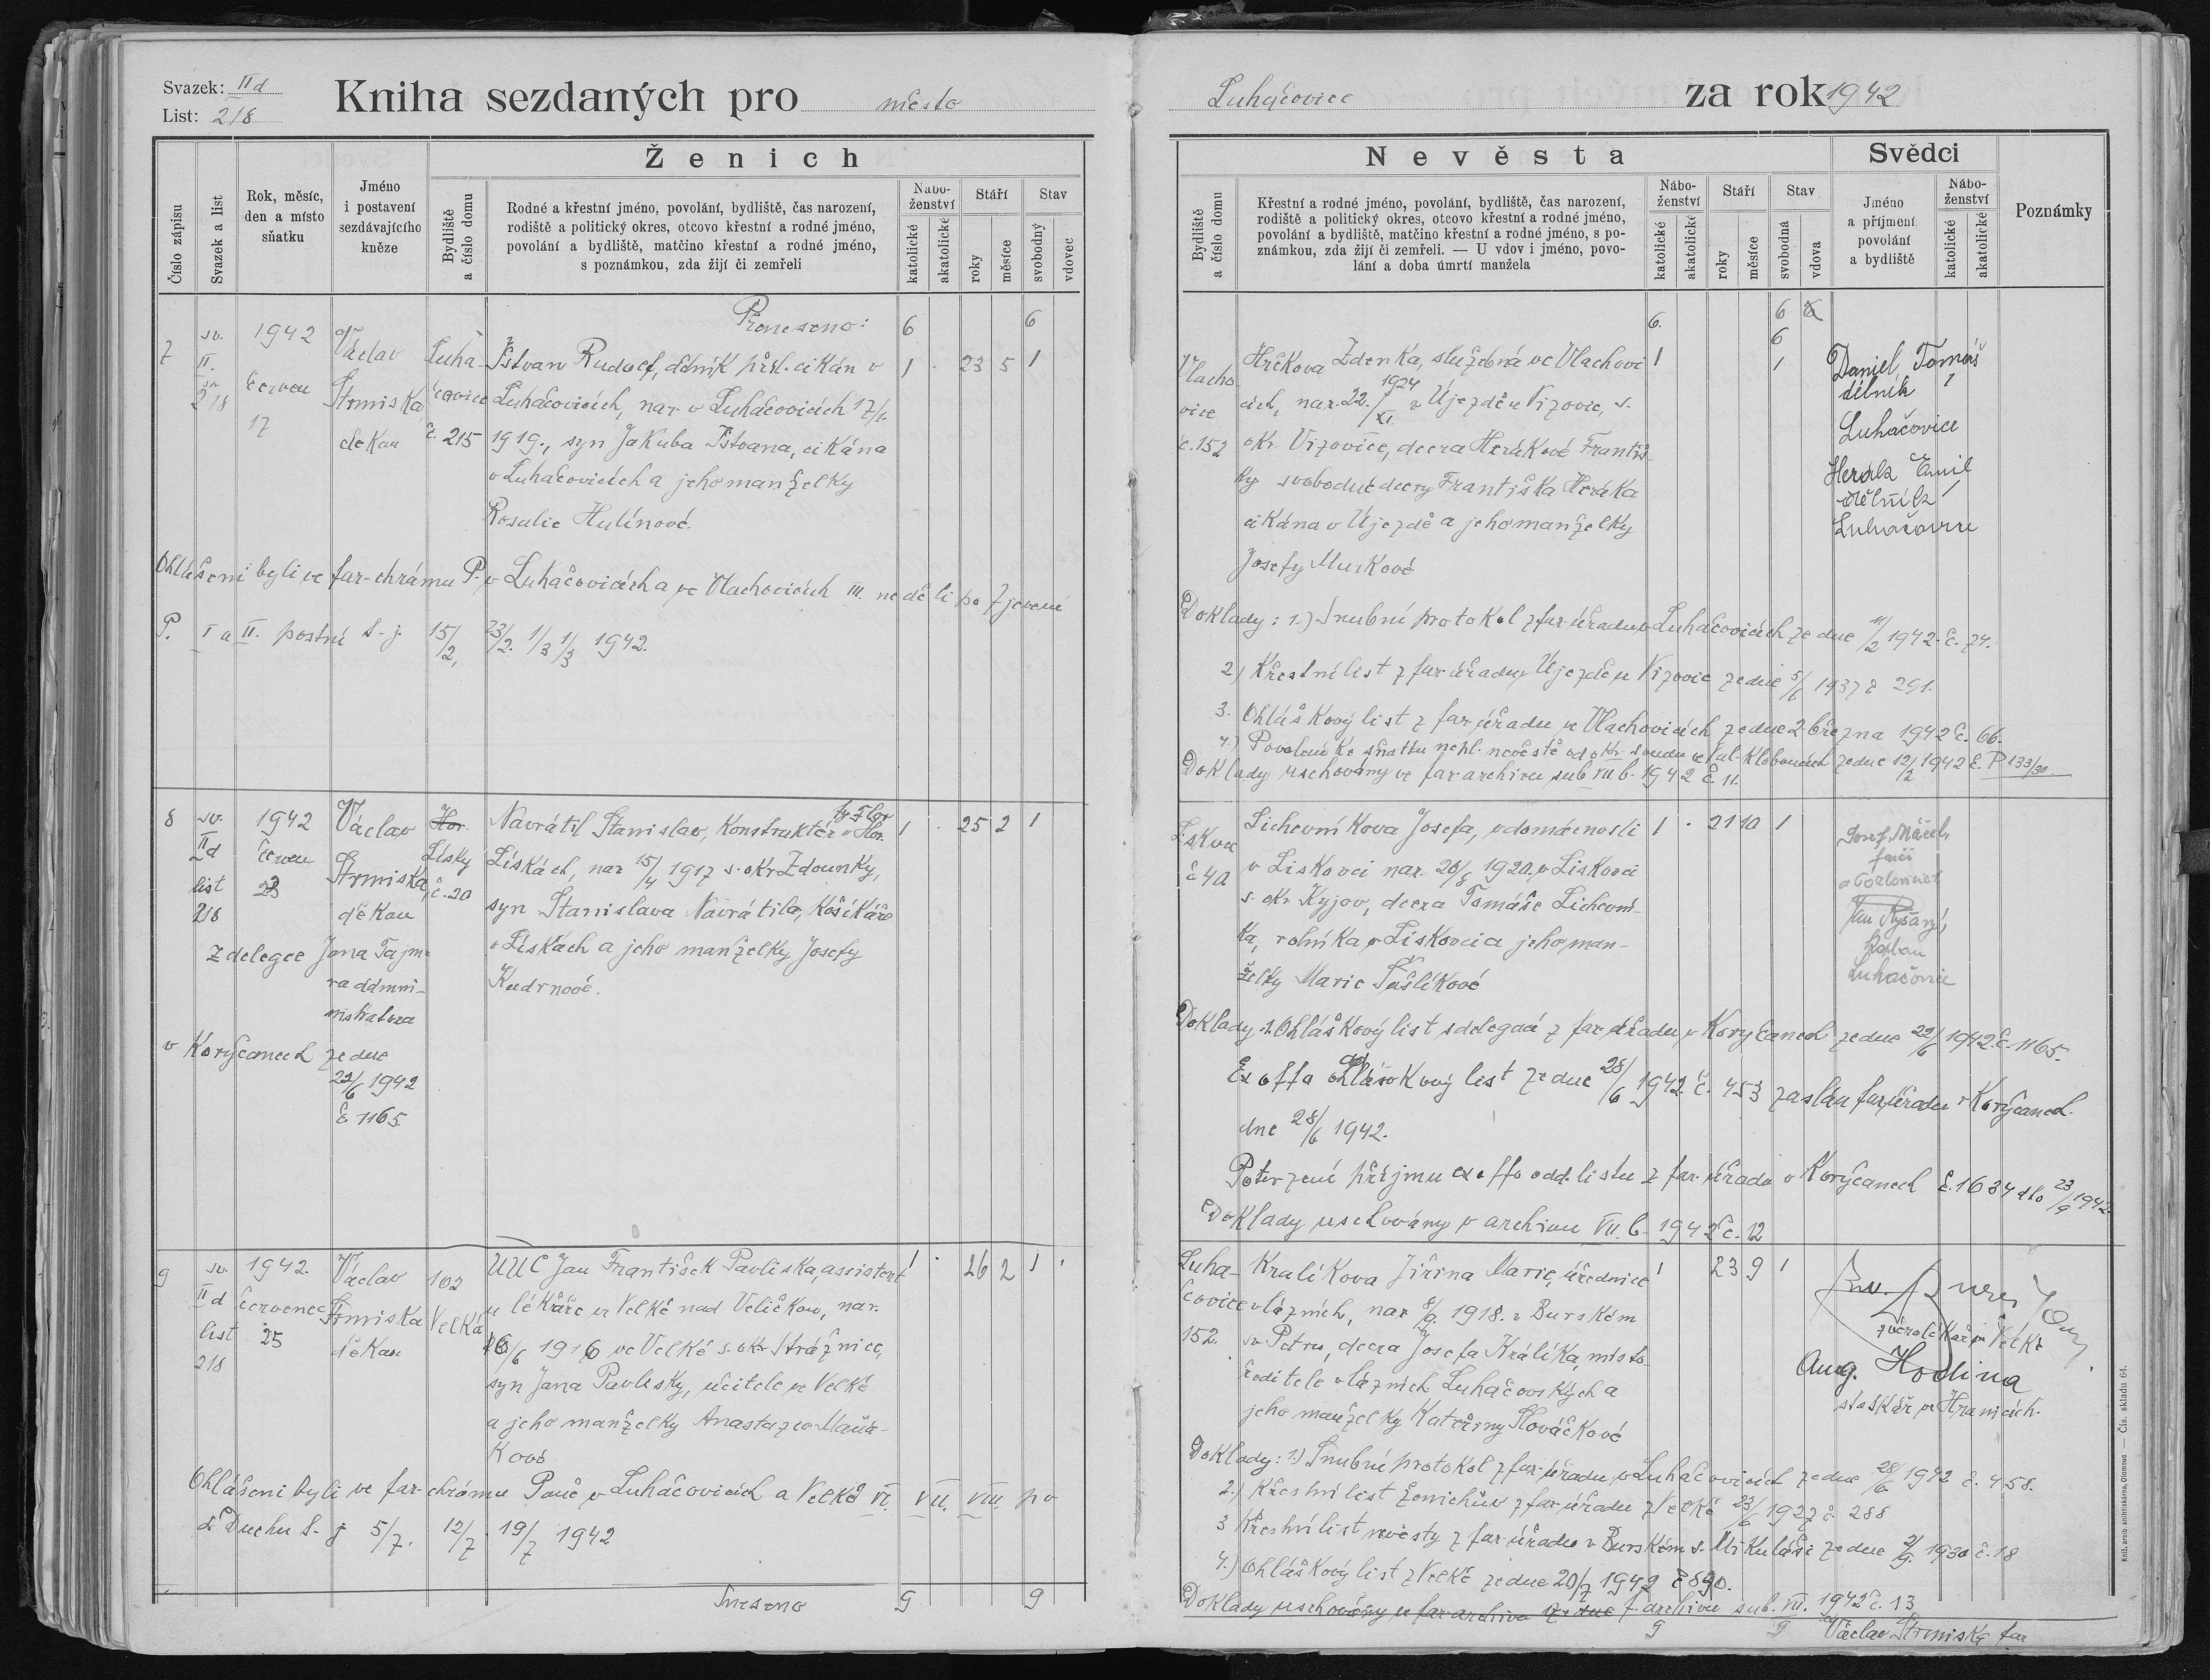 Svazek: IId
List: 218
Kniha sezdaných pro město
Číslo zápisu
Svazek a list
Rok, měsíc,
den a místo
sňatku
Jméno
i postavení
sezdávajícího
kněze
Ženich
Bydliště
a číslo domu
Rodné a křestní jméno, povolání, bydliště, čas narození,
rodiště a politický okres, otcovo křestní a rodné jméno,
povolání a bydliště, matčino křestní a rodné jméno,
s poznámkou, zda žijí či zemřeli
Nábo-
ženství
katolické
akatolické
Stáří
roky
měsíce
Stav
svobodný
vdovec
Přeneseno: 6 6
7
sv.
II.
218
1942
červen
17
Václav
Strmiska
děkan
Luha-
čovice
č. 215
Ištvan Rudolf, dělník přísl. cikán v 1 23 5 1
Luhačovicích, nar. v Luhačovicích 17/1.
1919., syn Jakuba Ištvana, cikána
v Luhačovicích a jeho manželky
Rosalie Hulínové.
Ohlášeni byli ve far. chrámu P. v Luhačovicích a ve Vlachovicích III. neděli po Zjevení
P. I a II. postní t. j. 15/2, 23/2. 1/3 1942.
8
sv.
IId
list
218
1942
červen
23
Václav
Strmiska,
děkan
z delegce Jana Tajm-
ra admini-
nistratora
v Koryčanech ze dne
22/6 1942
č 1165
Hor.
Lísky
č. 20
Navrátil Stanislav, Konstruktér v Hor. 1 25 2 1
Lískách, nar 15/4 1917 s. okr Zdounky,
syn Stanislava Navrátila, Košíkáře
v Lískách a jeho manželky Josefy
Kudrnové.
9
sv.
II d
list
218
1942.
červenec
25
Václav
Strmiska
děkan
102
Velká
UUC Jan František Pavliska, assistent 1 26 2 1
u lékaře ve Velké nad Veličkou, nar.
1916 ve Velké s. okr Strážnice,
syn Jana Pavlisky, učitele ve Velké
a jeho manželky Anastazie Maňá-
kové
Ohlášeni byli ve far. chrámu Páně v Luhačovicích a Velké VI. VII. VIII. po
sv Duchu t. j 5/7. 12/7. 19/7 1942
Sneseno 9 9
Luhačovice za rok 1942
Nevěsta
Bydliště
a číslo domu
Křestní a rodné jméno, povolání, bydliště, čas narození,
rodiště a politický okres, otcovo křestní a rodné jméno,
povolání a bydliště, matčino křestní a rodné jméno, s po-
známkou, zda žijí či zemřeli. — U vdov i jméno, povo-
lání a doba úmrtí manžela
Nábo-
ženství
katolické
akatolické
Stáří
roky
měsíce
Stav
svobodná
vdova
Svědci
Jméno
a příjmení
povolání
a bydliště
Nábo-
ženství
katolické
akatolické
Poznámky
6. 6
6
Vlacho
vice
č. 152
Zdenka, služebná ve Vlachovi 1 1
cích, nar. 22./XI. 1924 v Újezdě u Vizovic, s.
okr. Vizovice, dcera Herákové Františ-
ky svobodné dcery Františka Heráka
cikána v Újezdě a jeho manželky
Josefy Murkové
Daniel Tomáš
dělník
Luhačovice
Herák Emil
dělník
Luhačovice
Doklady: 1.) Snubní protokol z far úřadu v Luhačovicích ze dne 11/2 1942. č. 74.
2) Křestní list z far úřadu v Újezdě u Vizovic ze dne 5/6 1937 č 291.
3. Ohláškový list z far úřadu ve Vlachovicích ze dne 2. března 1942 č. 66.
4) Povolení ke sňatku nezl. nevěstě od okr. soudu ve Val. Kloboucích ze dne 12/2 1942 č. P 133/30
Doklady uschovány ve far archivu sub VII b. 1942 č. 11.
č 40
Lichovníkova Josefa, v domácnosti 1 21 10 1
v Liskovci nar. 20/8 1920. v Liskovci
s. okr Kyjov, dcera Tomáše Lichovní-
ka, rolníka v Liskovci a jeho man-
želky Marie Tušlíkové
Josef Máčel,
farář
v Pozlovicích
Jan Ryšavý,
kaplan
Luhačovice
Doklady: 1. Ohláškový list s delegací z far úřadu v Koryčanech ze dne 22/6 1942. č. 1165.
Ex offo oddavkový list ze dne 28/6 1942. č. 453 zaslán far. úřadu v Koryčanech
dne 28/6 1942.
Potvrzení příjmu ex offo odd. listu z far. úřadu v Koryčanech č. 1634 dto 23/9 1942.
Doklady uschovány v archivu VII. b. 1942 č. 12
Luha-
čovice
152.
Kralíkova Jiřina Marie, úřednice 1 23 9 1
v lázních, nar 1918. v Burském
sv Petru, dcera Josefa Králíka, místo-
ředitele v lázních Luhačovských a
jeho manželky Kateřiny Slováčkové
zvěrolékař ve Velké
Aug. Hodina
stoskář ve Hranicích.
Doklady: 1.) Snubní protokol z far. úřadu v Luhačovicích ze dne 28/6 1942 č. 458.
2.) Křestní list ženichův z far. úřadu z Velké 23/6 1927 č. 288
3 Křestní list nevěsty z far úřadu v Burském s. Mikuláši ze dne 1930 č. 18
4.) Ohláškový list z Velké ze dne 20/7 1942 č 890.
Doklady uschovány ve far archivu ze dne f. archivu sub. VII. 1942 č. 13
9 9
Václav Strmiska far
Knih. arcib. knihtiskárna, Olomouc — Čís. skladu 64.